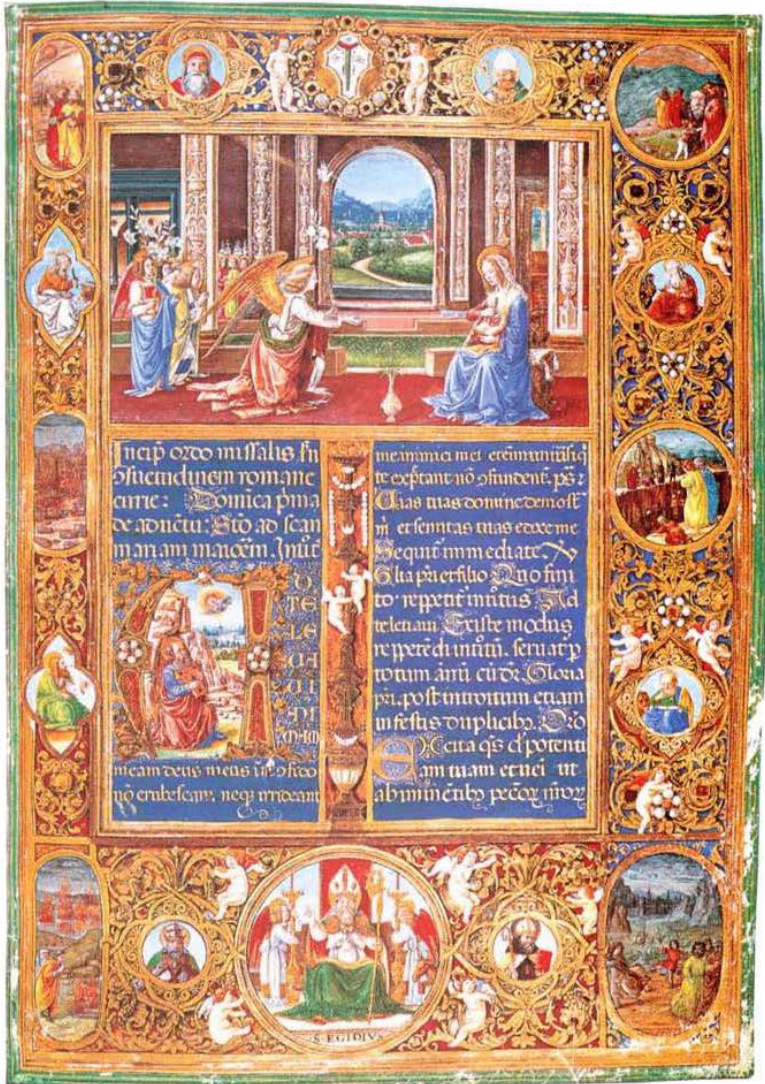 Incip ordo missalis fm
ɔsuetudinem romane
curie: Domica pma
de aduetu: Sto ad scam
mariam maiorem. Introit
A
D
TE
LE
UA
UI
NI
MAM
meam deus meus
nō erubescam neq irrideant
me inimici mei etenim uniusi
te expectant nō ɔfundent. ps:
Uias tuas domine demost
mi et semitas tuas edoce me
Sequit immediate.
Glia pri et filio Quo fini
to reppetit introitus Ad
te leuaui. Et iste modus
reppetedi introitu. seruat p
totum annu cu dr. Gloria
pri. post introitum etiam
in festis duplicib. Oro
Excita qs dpotenti
am tuam et uei ut
ab iminetib peccor nror
S · EGIDIVS